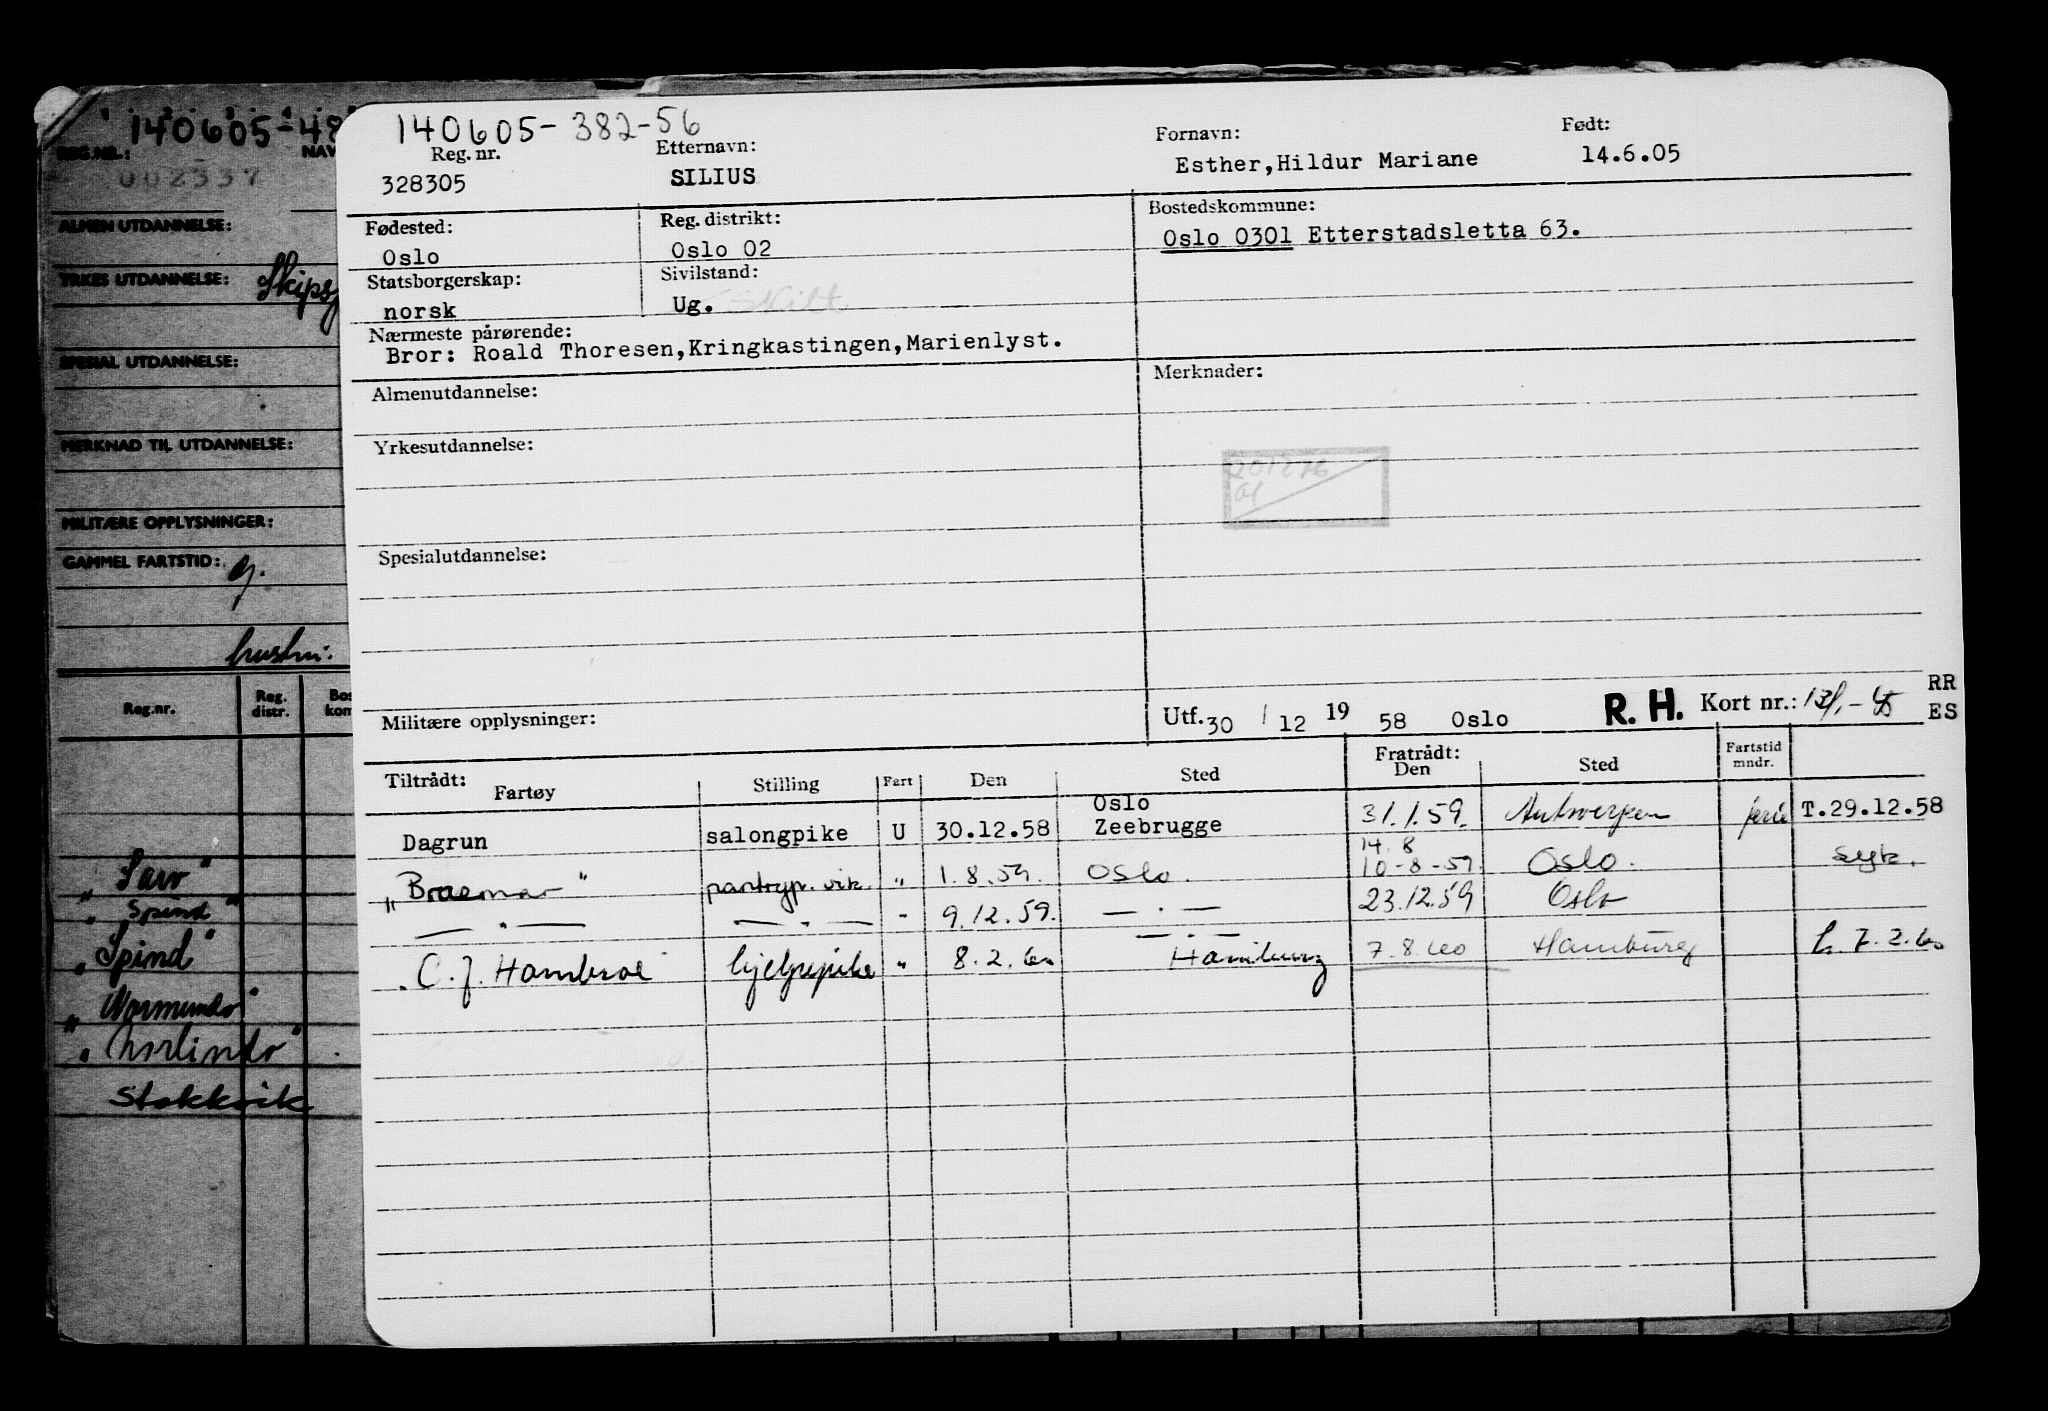 140605-48
REG.NR.: NAV
002337
ALMEN UTDANNELSE:
YRKES UTDANNELSE: Skips
SPESIAL UTDANNELSE:
MERKNAD TIL UTDANNELSE:
MILITÆRE OPPLYSNINGER:
GAMMEL FARTSTID:
Reg.nr. Reg. distr. Bos kom
"Spind"
"Spind"
"Norlindo"
Stokkvik
140605-382-56
Reg. nr. Etternavn: Fornavn: Født:
328305 SILIUS Esther,Hildur Mariane 14.6.05
Fødested: Reg. distrikt: Bostedskommune:
Oslo Oslo 02 Oslo 0301 Etterstadsletta 63.
Statsborgerskap: Sivilstand:
norsk Ug. skilt
Nærmeste pårørende:
Bror: Roald Thoresen,Kringkastingen,Marienlyst.
Almenutdannelse: Merknader:
Yrkesutdannelse:
Spesialutdannelse:
Militære opplysninger: Utf. 30 / 12 19 58 Oslo R. H. Kort nr.: RR
ES
Tiltrådt: Fartøy Stilling Fart Den Sted Fratrådt: Den Sted Fartstid mndr.
Dagrun salongpike U 30.12.58 Oslo Zeebrugge 31.1.59. Antwerpen ferie T.29.12.58
14.8
"Braemar" pantryp. vik. " 1.8.59. Oslo. 10-8-59 Oslo. syk.
— " — — " — - 9.12.59. — " — 23.12.59 Oslo
— " —
"C.J. Hambro" hjelpepike " 8.2.60 Hamburg 7.8.60 Hamburg h. 7.2.60